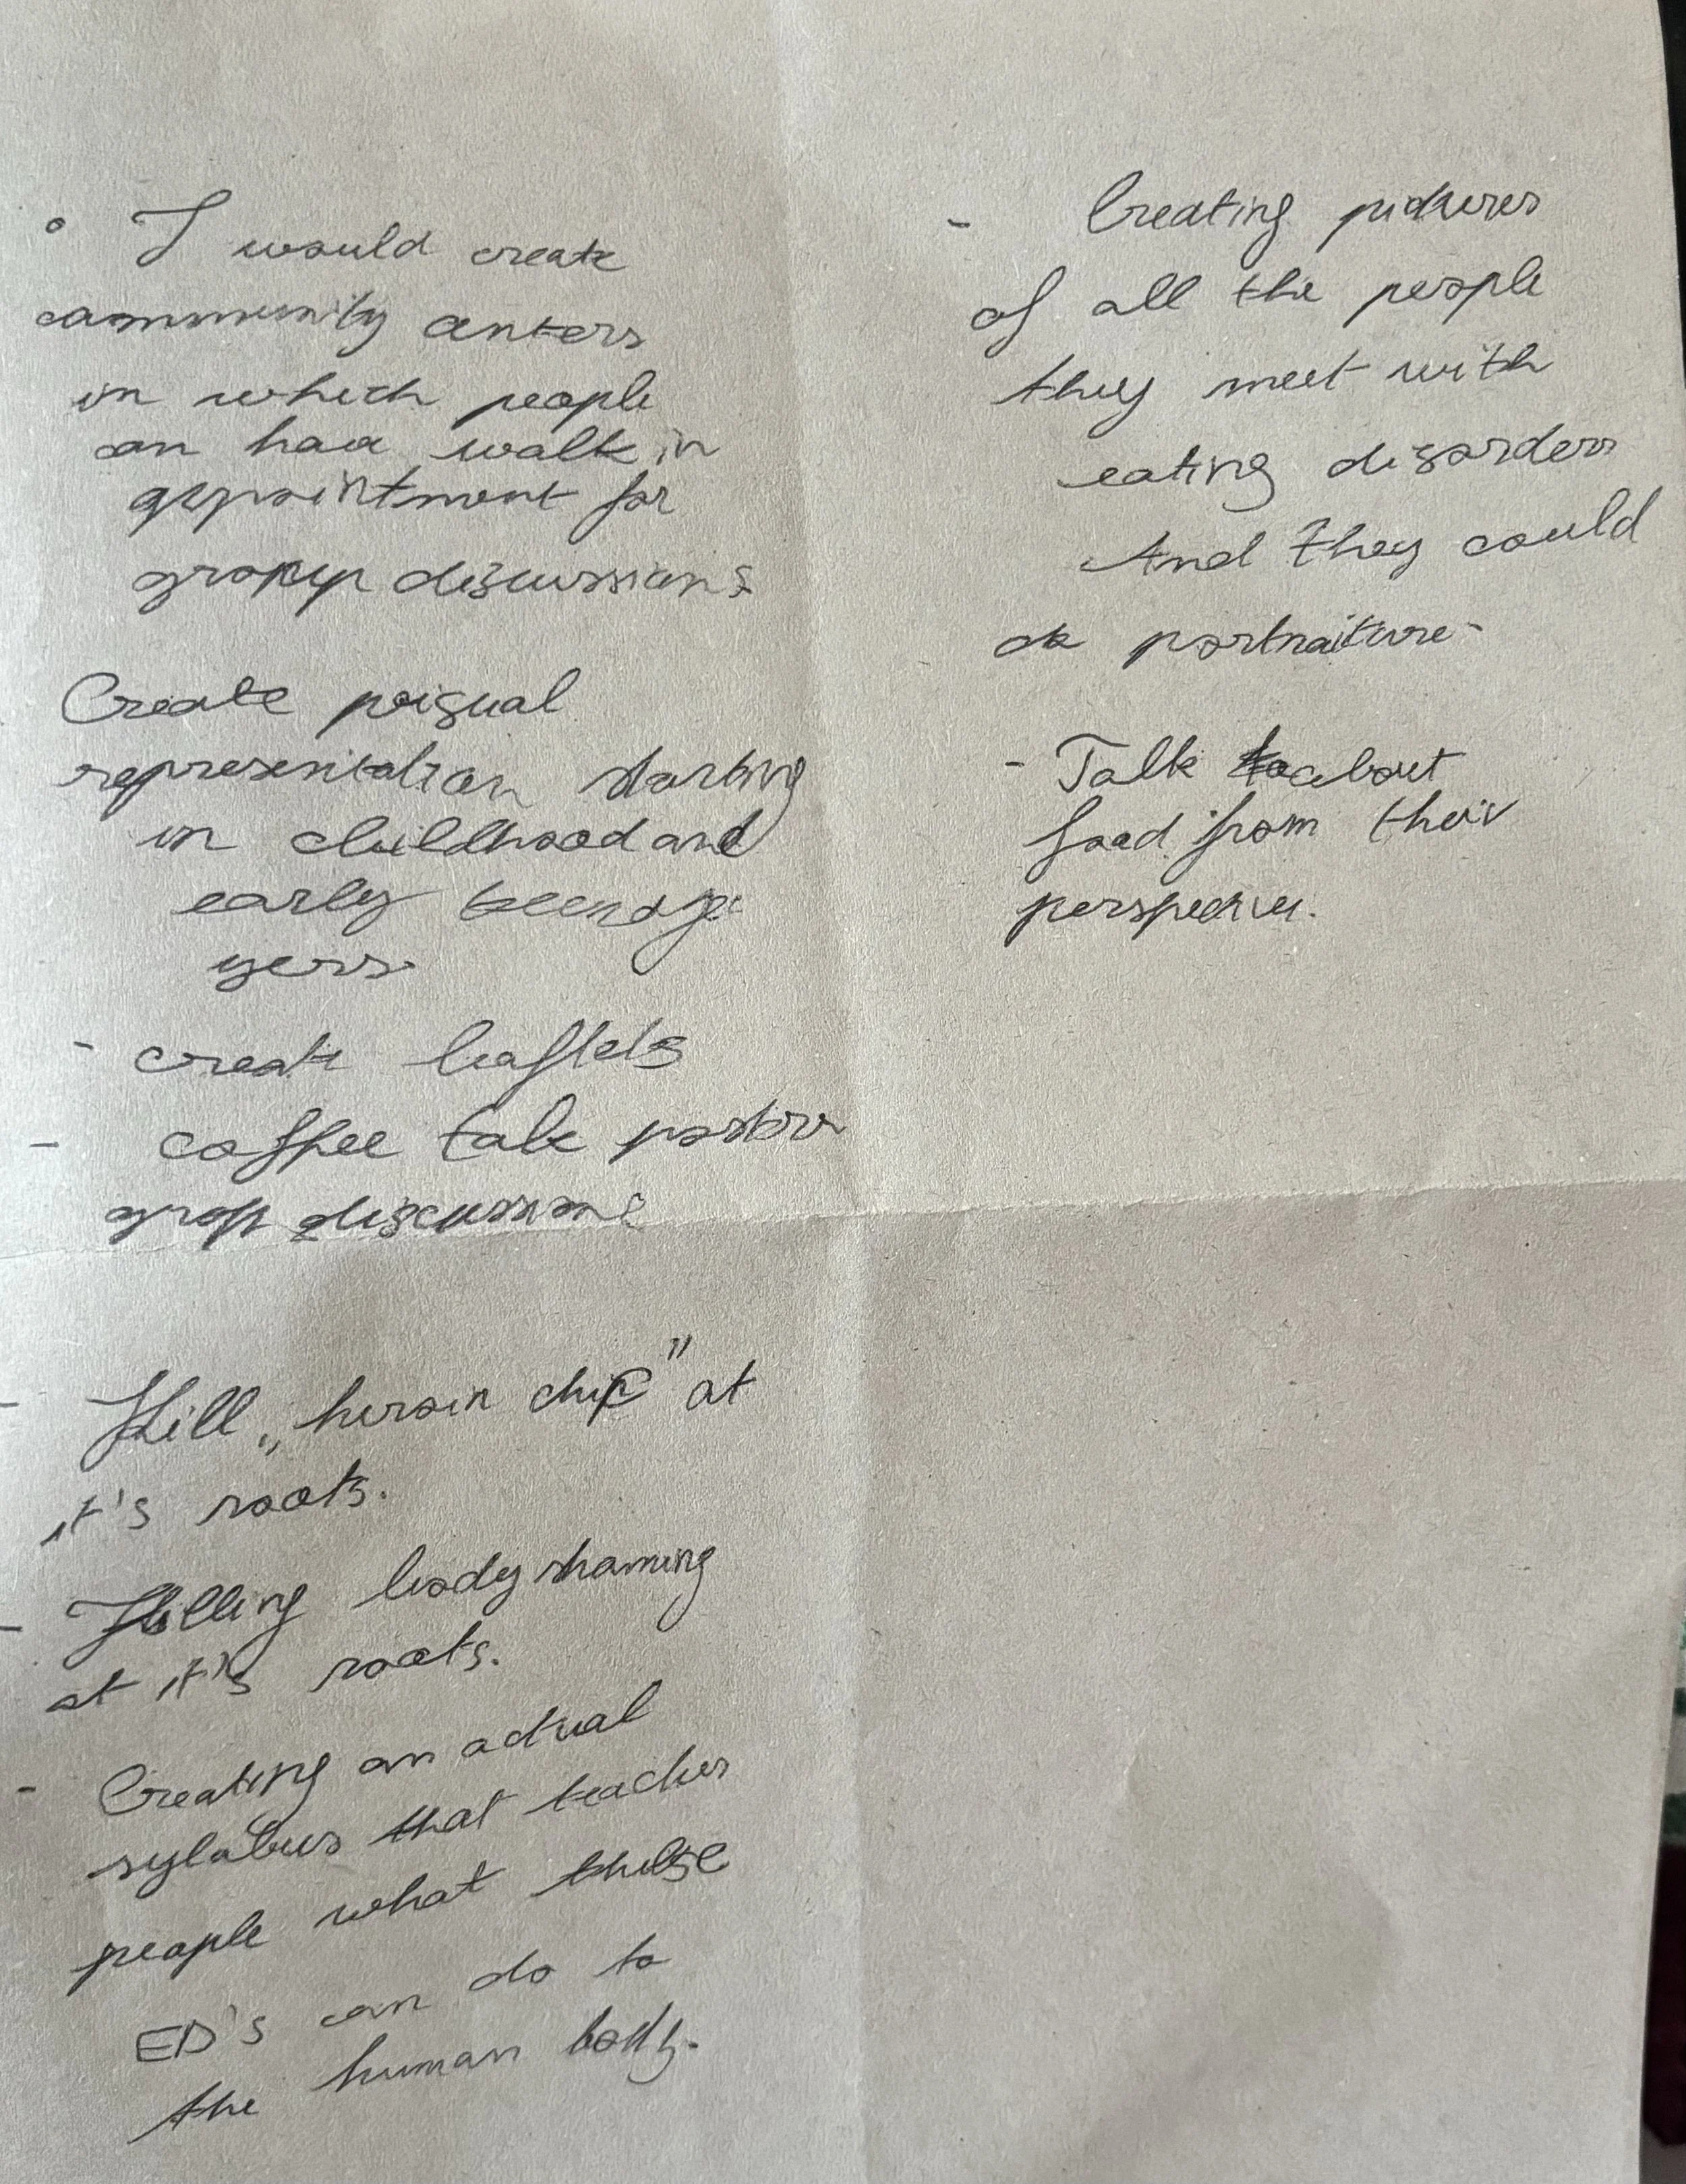 ° I would create
community centers
in which people
can have walk in
appointment for
group discussions
Create visual
representation starting
in childhood and
early teenage
yers
- create leaflets
- coffee talk
group discussions
- Kill „heroin chic" at
it's roots.
- Killing body shaming
at it's roots.
- Creating an actual
sylabus that teaches
people what these
ED's can do to
the human body.
- Creating pictures
of all the people
they meet with
eating disorders
And they could
do portraiture-
- Talk about
food from their
perspective.